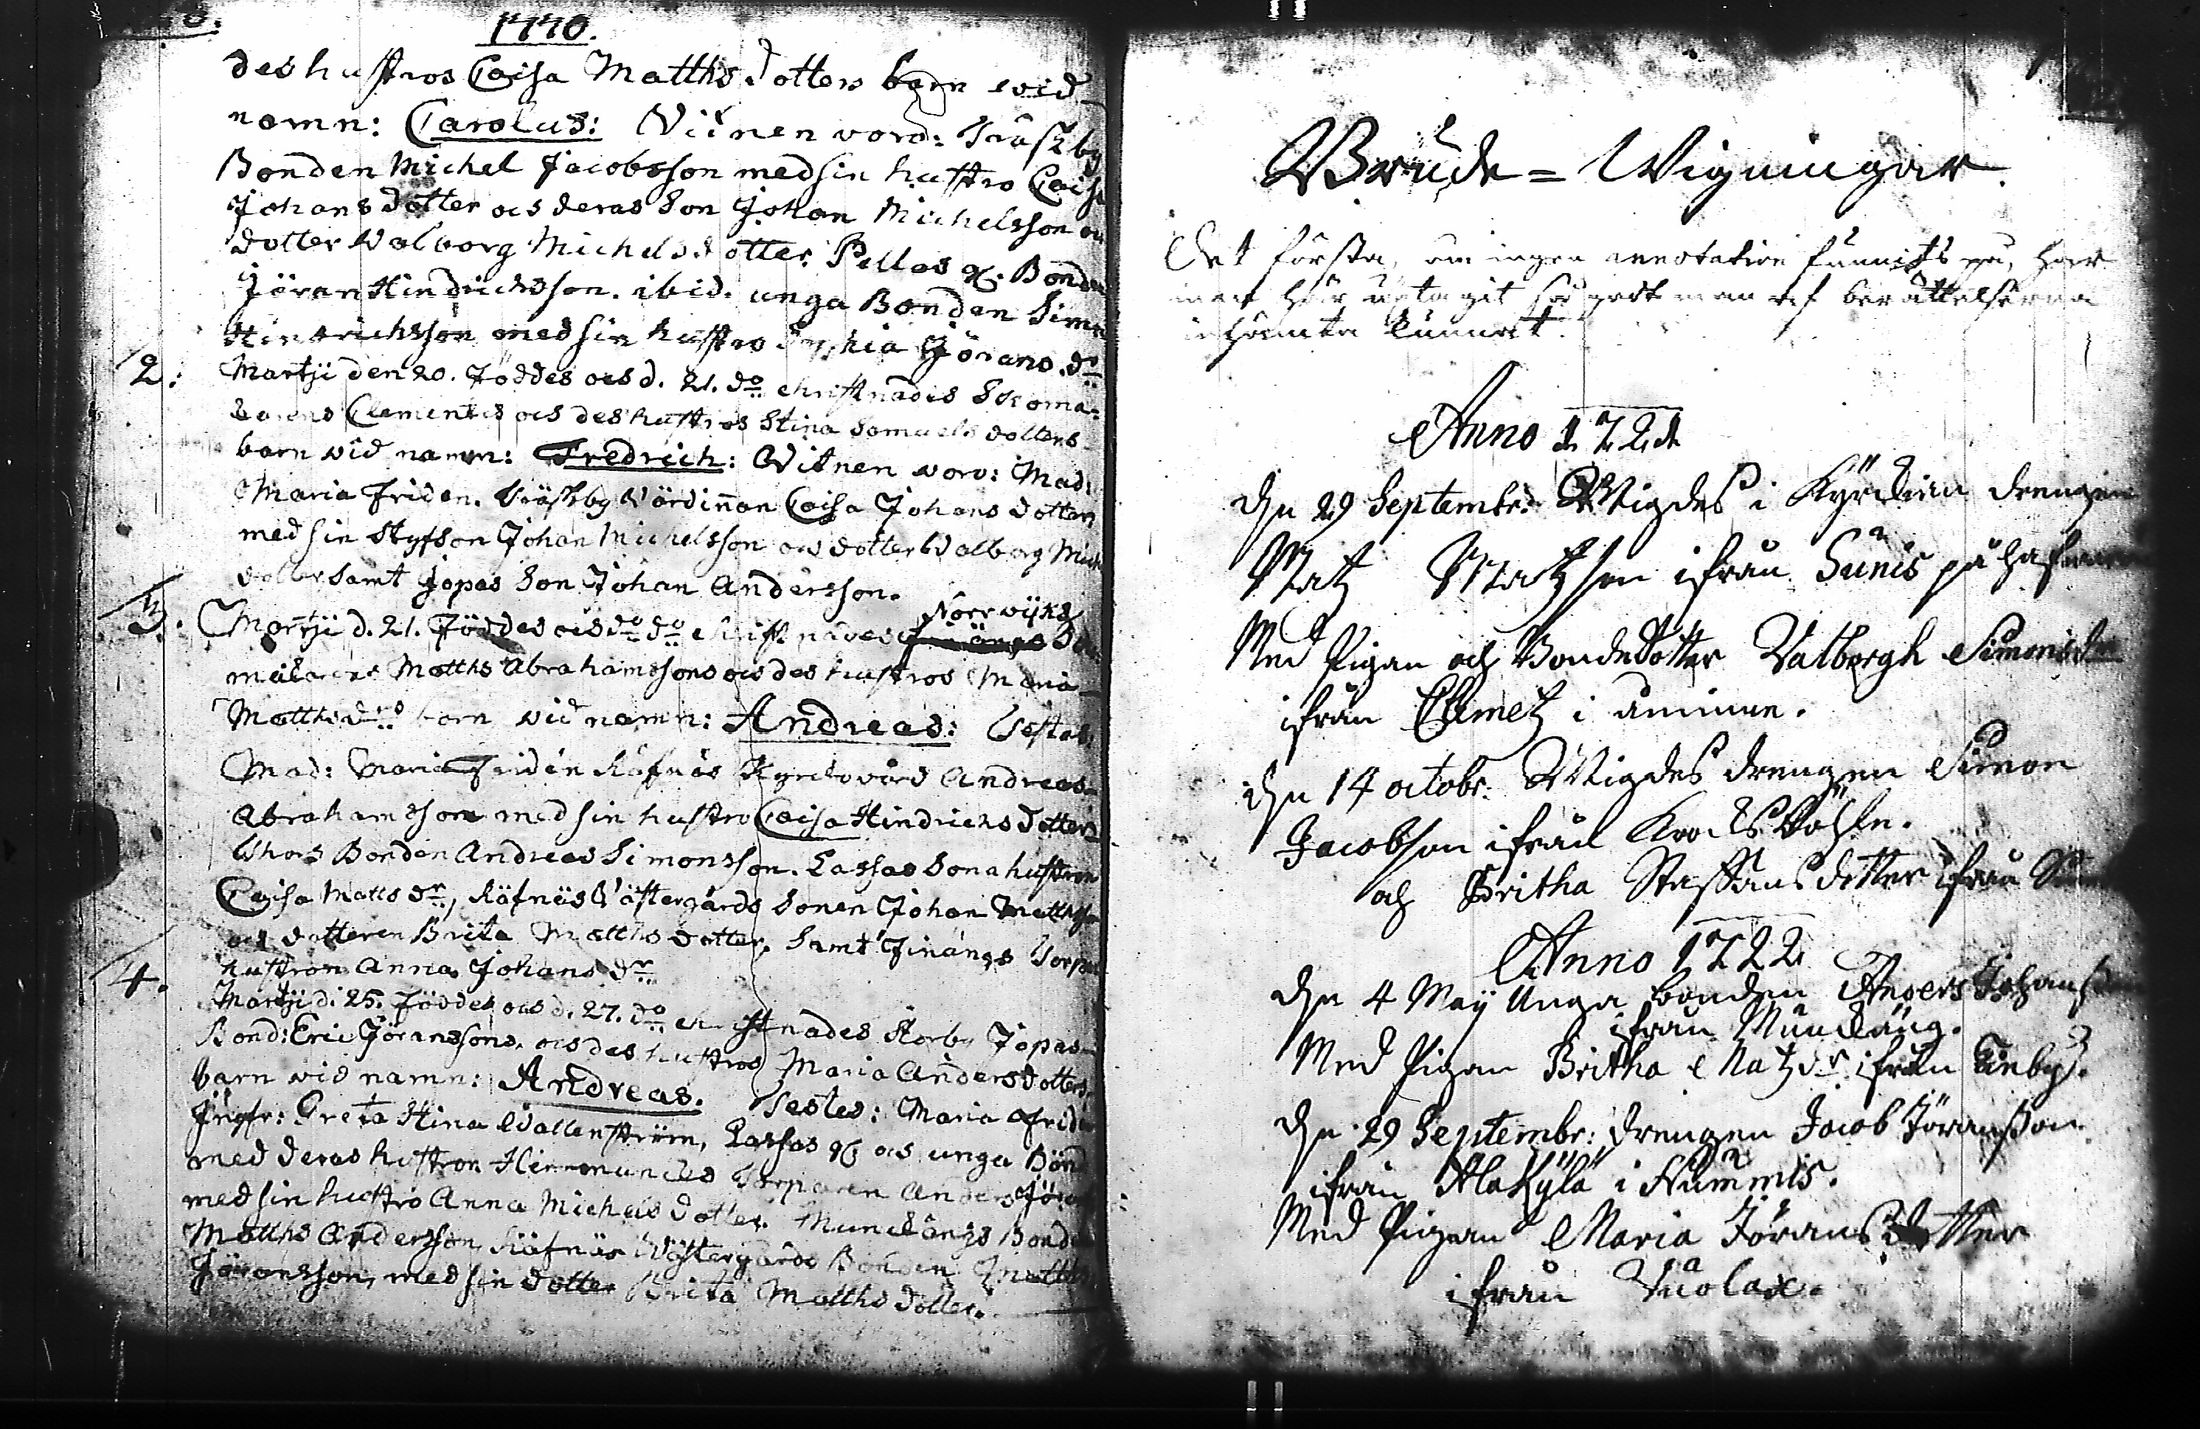 1770.
des hustros Caisa Matths dotters barn wid
namn: Carolus: Vitnen voro: Träskby
Bonden Michel Jacobsson med sin hustro Caisa
Johans dotter ocs deras Son Johan Michelsson ocs
dotter Valborg Michels dotter. Pellas Bonden
Jöran Hindrichsson. ibid. unga Bonden Simon
Hindrichsson med sin hustro Sophia Jörans dr
2:
Martii den 20. föddes ocs d. 21. do christnades Skoma-
karens Clementis ocs des hustros Stina Samuels dotters
barn wid namn: Fredrich: Vitnen woro: Mad:
Maria Friden. Träskby Värdinnan Caisa Johans dotter
med sin styfson Johan Michelsson ocs dotter Valborg Mich
dotter samt Jopas Son Johan Andersson.
3.
Norrwijks
Martii d. 21. föddes ocs do do christnades
Matths Abrahamssons ocs des hustros Maria
Matths drs barn wid namn: Andreas: Testes:
Mad: Maria Fridén Räfnäs Kyrckovärd Andreas
Abrahamsson med sin hustro Caisa Hindrichs dotter
Bonden Andreas Simonsson. Lassas Sonahustron
Caisa Matts dr, Räfnäs Västergårds Sonen Johan Mattsson
ocs dotteren Brita Matths dotter. Samt Finängs Torpar
hustron Anna Johans dr
4.
Martii d. 25. föddes ocs d. 27. do christnades Storby Jopas
Bond: Eric Jöranssons. ocs des hustros Maria Anders dotters
barn wid namn: Andreas. Testes: Maria Fridén
Jngfr: Greta Stina Wallenström, Lassas ocs unga Bönd
med deras hustron Torparen Anders Jöran
med sin hustro Anna Michels dotter. Munckängs Bonden
Matths Andersson, Räfnäs Västergårds Bonden Matths
Jöransson, med sin dotter Brita Matths dotter.
Brude=Wigningar.
Det första, om ingen annotation funnits på, har
man här uptagit så godt man af berättelserna
inhämta kunnat.
Anno 1721
Den 29 Septembr: Wigdes i Kyrckian drengen
Matz Matzson ifrån Sunis på
Med Pigan och Bondedotter Valborgh Simonsdr
ifrån Clemetz i åminne.
Den 14 octobr: Wigdes drengen Simon
Jacobson ifrån
och Britha Staffansdotter ifrån
Anno 1722
Den 4 Maij Unga bonden Anders Johansson
ifrån Munckäng.
Med Pigan Britha Matzdr ifrån Finby.
Den 29 Septembr: drengen Jacob Jöransson
ifrån Alakylä i Nummis.
Med Pigan Maria Jörans dotter
ifrån Kuolax.